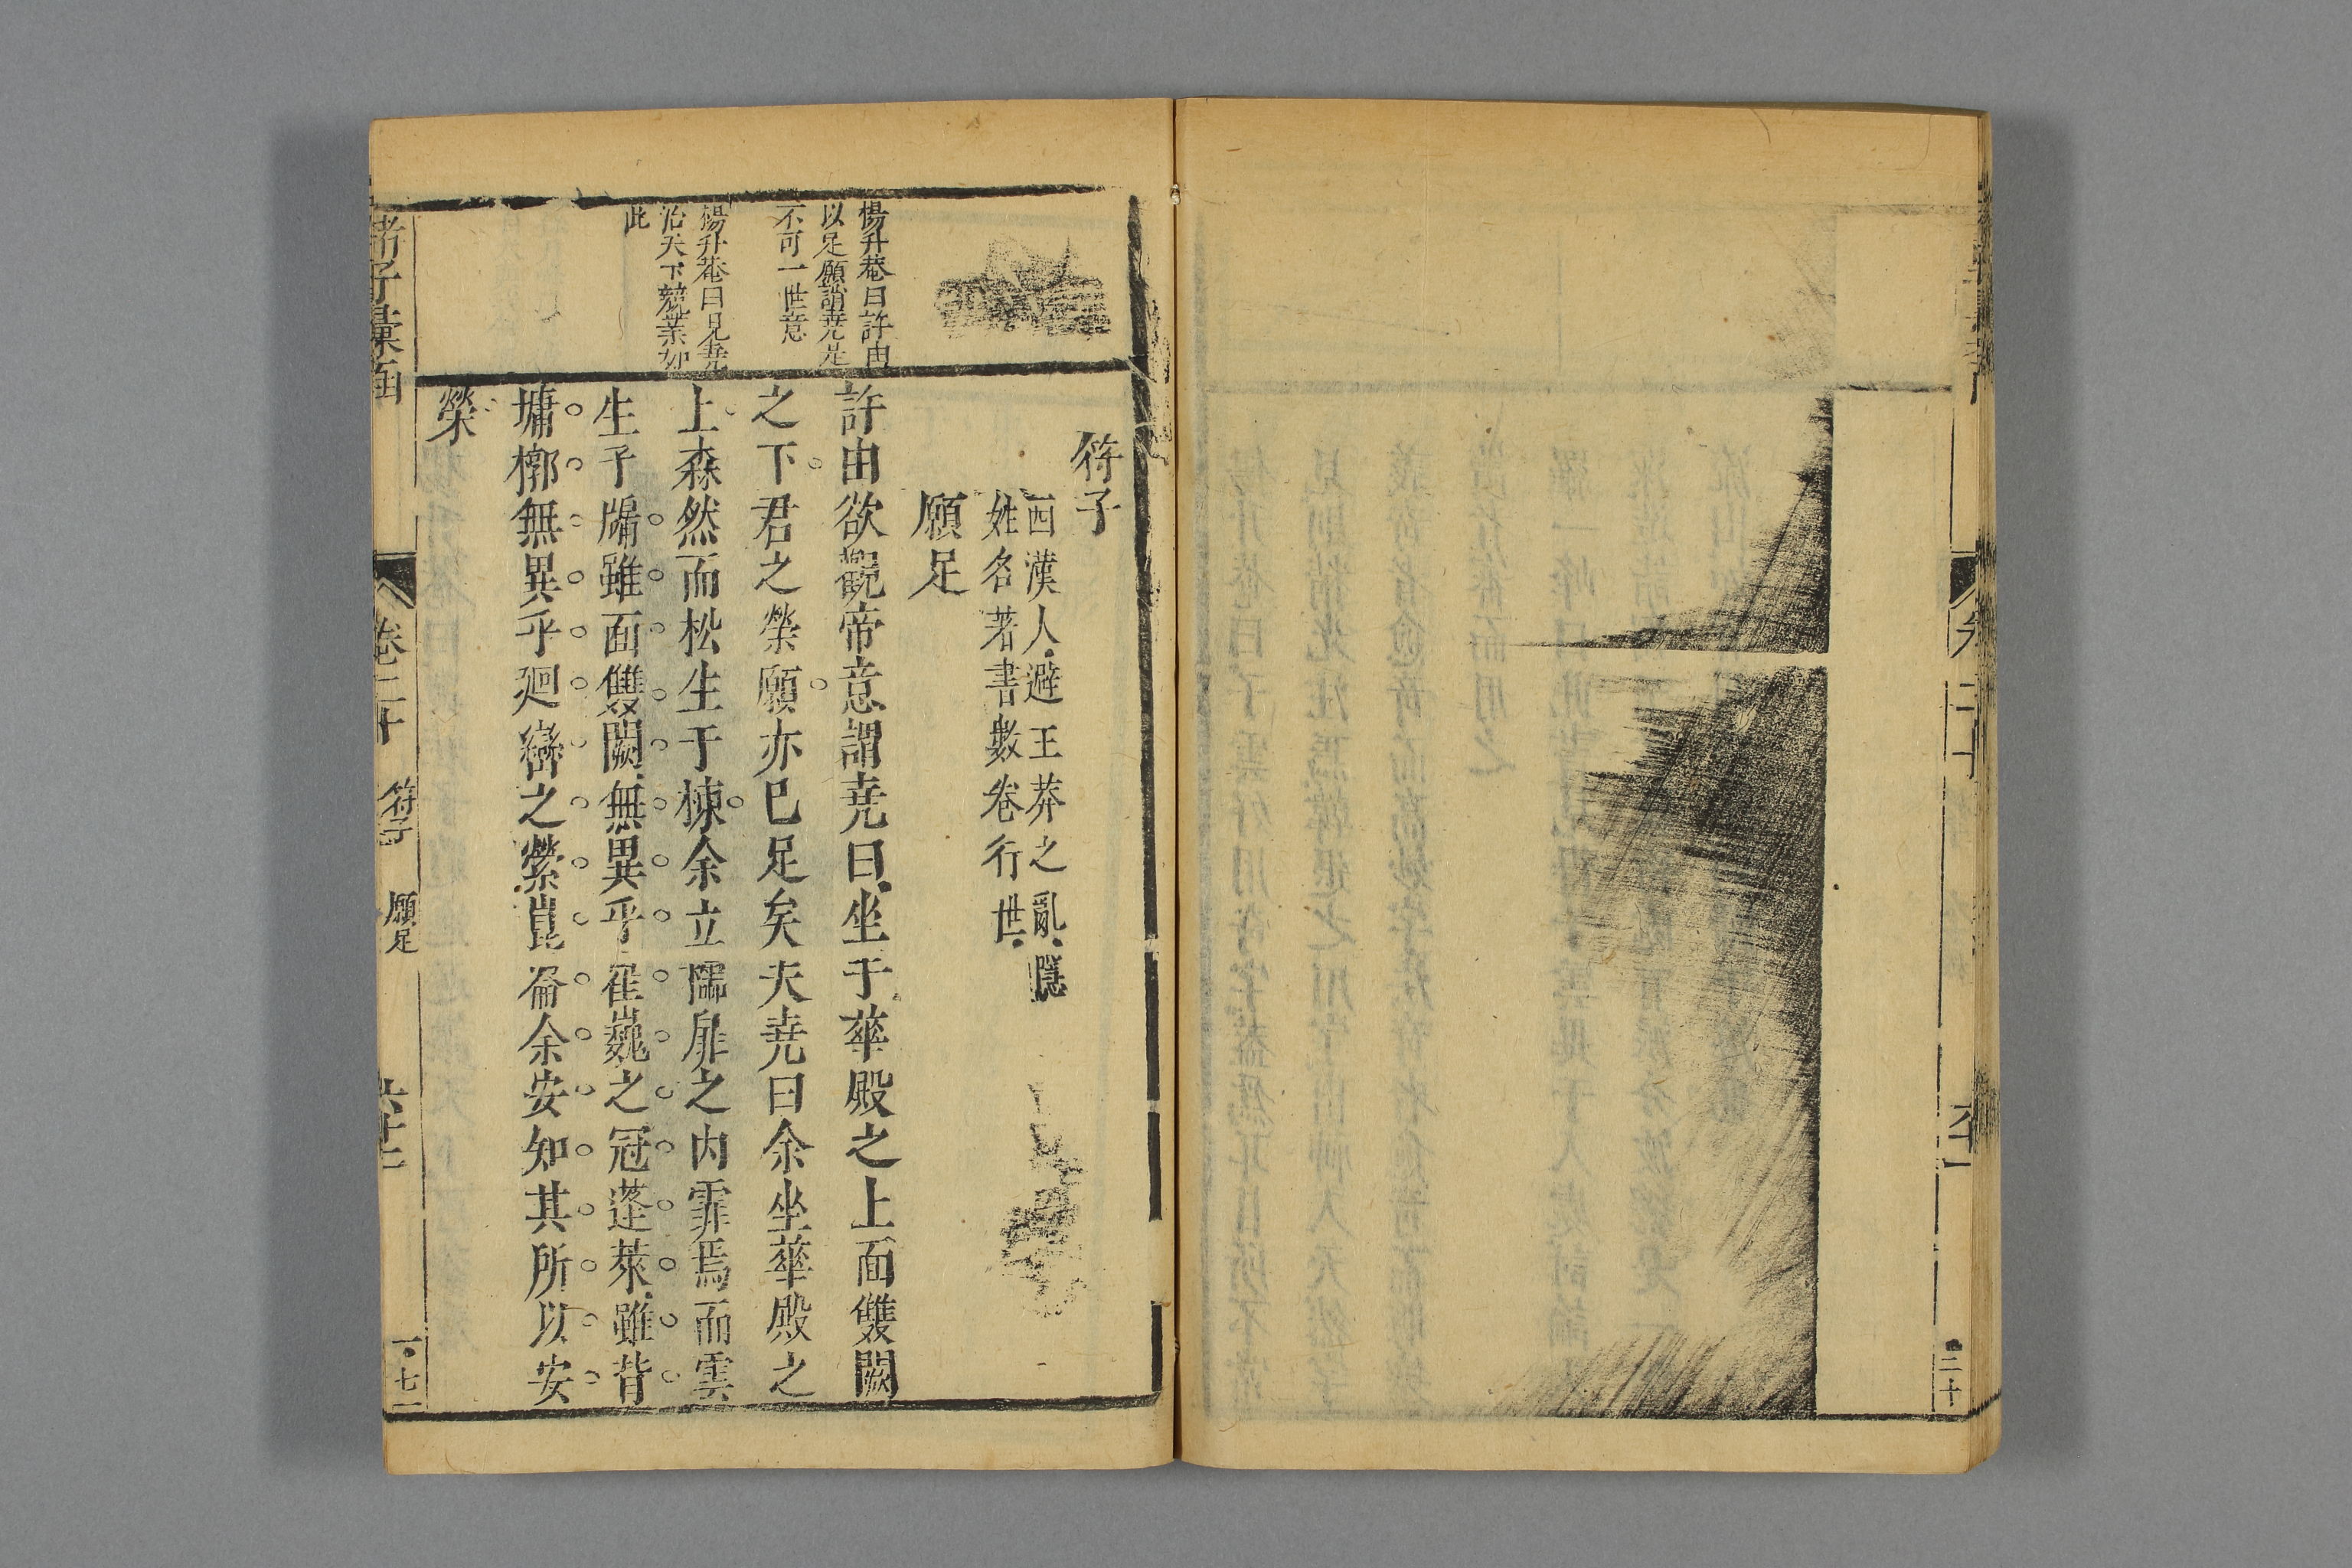 二十
符子
西漢人避王莽之亂隱
姓名著書數卷行世
願足
許由欲觀帝意謂堯曰坐于華殿之上面雙闕
之下君之榮願亦已足矣夫堯曰余坐華殿之
上森然而松生于棟余立櫺扉之内霏焉而雲
生于牖雖面雙闕無異乎崔巍之冠蓬萊雖背
墉槨無異乎廻巒之縈崑崙余安知其所以安
榮
楊升菴曰許由
以足願謂堯是
不可一世意
楊升菴曰見堯
治天下兢業如
此
諸子彙函
卷二十
符子
願足